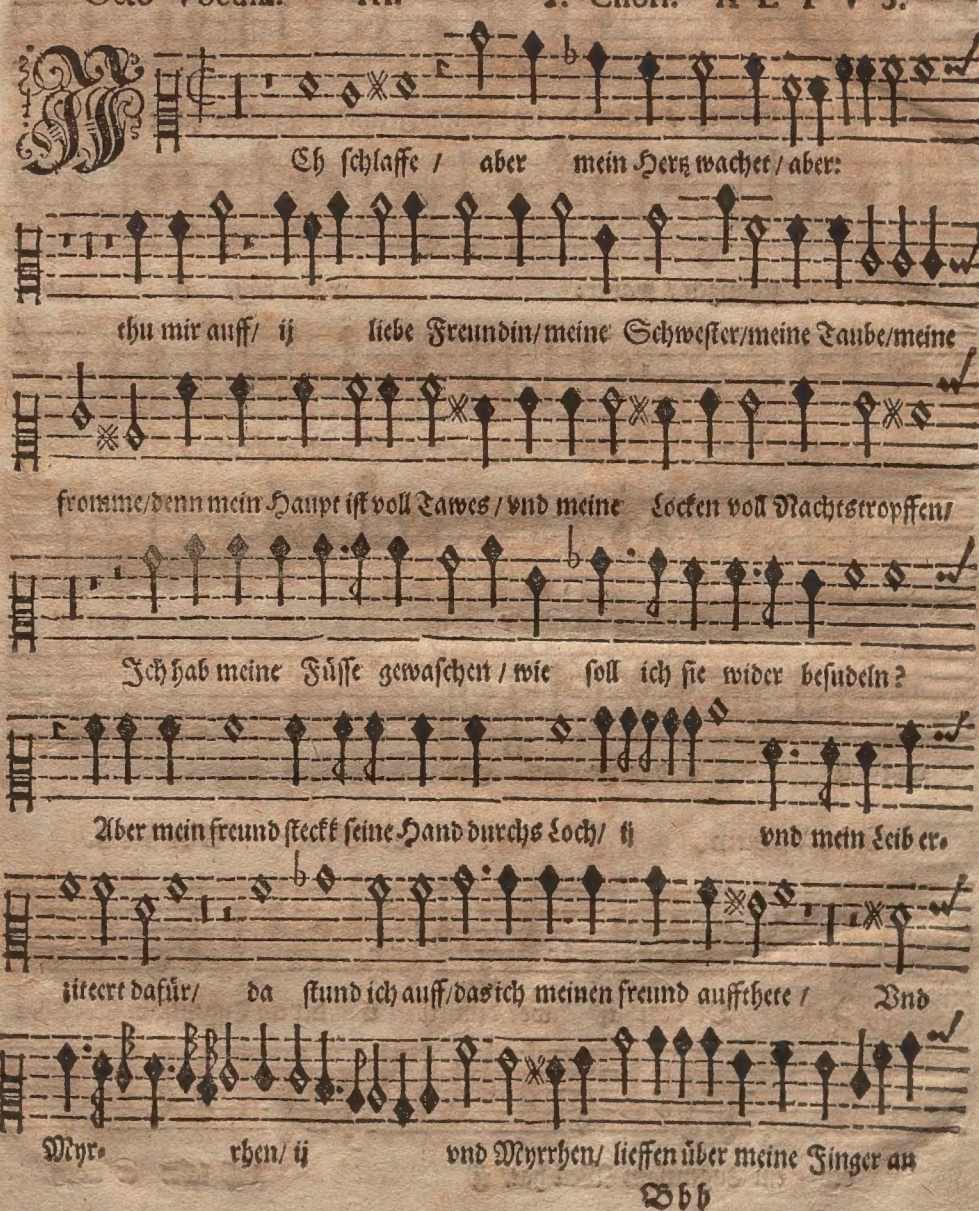 Octo Vocum. I. Chori. A L T V S.
ICh schlaffe / aber mein Hertz wachet / aber:
thu mir auff / ij liebe Freundin / meine Schwester / meine Taube / meine
fromme / denn mein Haupt ist voll Tawes / vnd meine Locken voll Nachtstropffen /
Ich hab meine Füsse gewaschen / wie soll ich sie wider besudeln?
Aber mein freund steckt seine Hand durchs Loch / ij vnd mein Leib er-
zitert dafür / da stund ich auff / das ich meinen freund auffthete / Vnd
Myr- rhen / ij vnd Myrrhen / lieffen über meine Finger an
Bbb